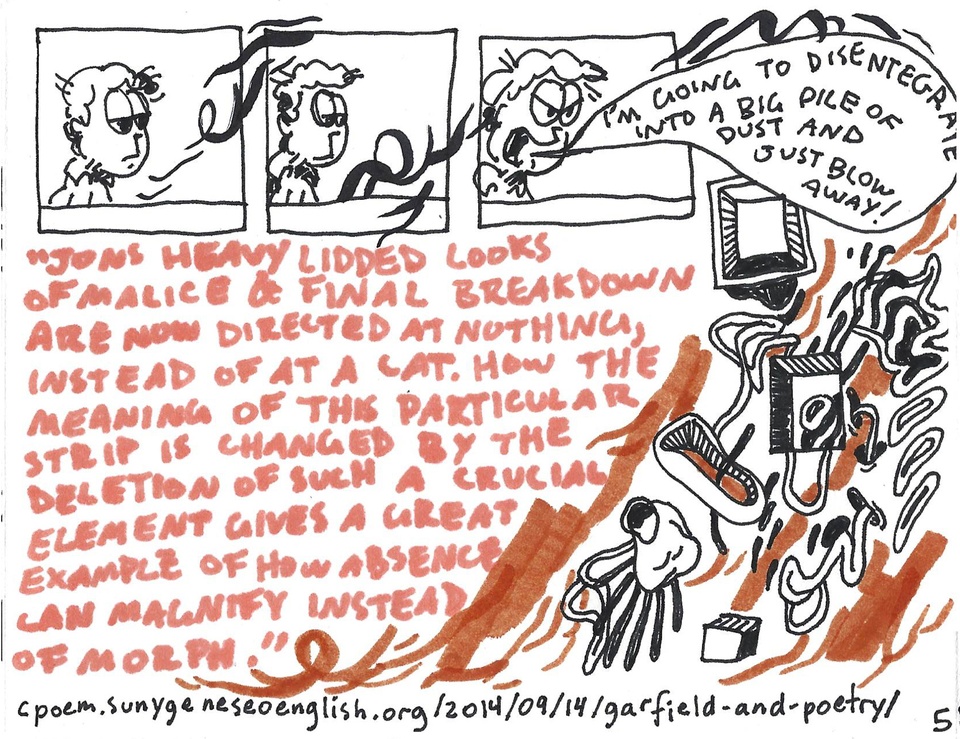 I'M GOING TO DISENTEGRATE
INTO A BIG PILE OF
DUST AND
JUST BLOW
AWAY!
"JONS HEAVY LIDDED LOOKS
OF MALICE & FINAL BREAKDOWN
ARE NOW DIRECTED AT NOTHING,
INSTEAD OF AT A CAT. HOW THE
MEANING OF THIS PARTICULAR
STRIP IS CHANGED BY THE
DELETION OF SUCH A CRUCIAL
ELEMENT GIVES A GREAT
EXAMPLE OF HOW ABSENCE
CAN MAGNIFY INSTEAD
OF MORPH."
cpoem.sunygeneseoenglish.org/2014/09/14/garfield-and-poetry/
5